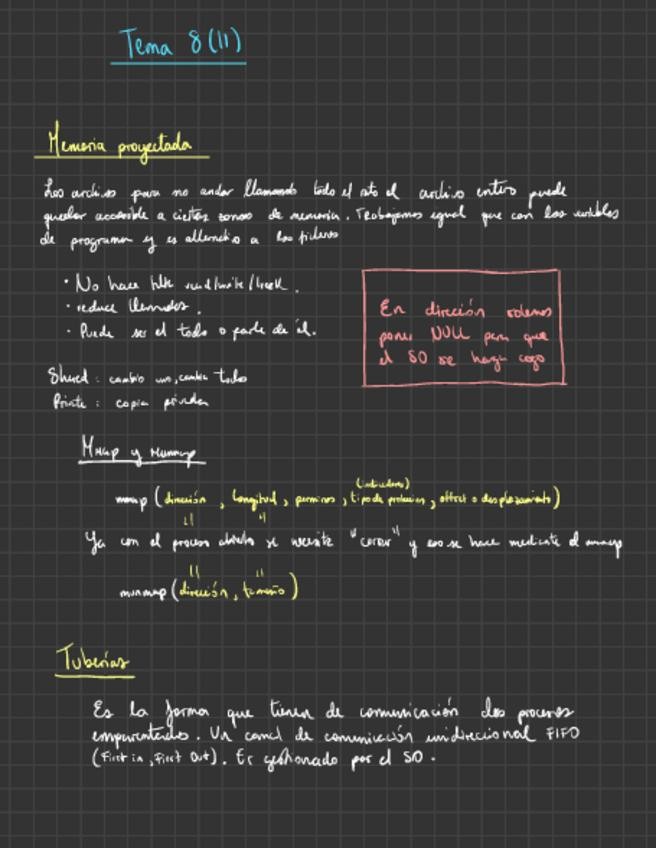 Tema 8 (II)
Memoria proyectada
Los archivos para no andar llamando todo el rato el archivo entero puede
quedar accesible a ciertas zonas de memoria. Trabajamos igual que con las variables
de programa y es alternativo a los ficheros
· No hace falta read/write/lseek.
· reduce llamadas.
· Puede ser el todo o parte de él.
En direción solemos
poner NULL para que
el SO se haga cargo
Shared: cambio uno, cambia todo
Private: copia privada
Mmap y Munmap
(indicadores)
mmap (dirección, longitud, permisos, tipo de proteccion, offset o desplazamiento)
Ya con el proceso abierto se necesita "cerrar" y eso se hace mediante el
munmap (dirección, tamaño)
Tuberías
Es la forma que tienen de comunicación dos procesos
emparentados. Un canal de comunicación unidireccional FIFO
(First in, First Out). Es gestionado por el SO.